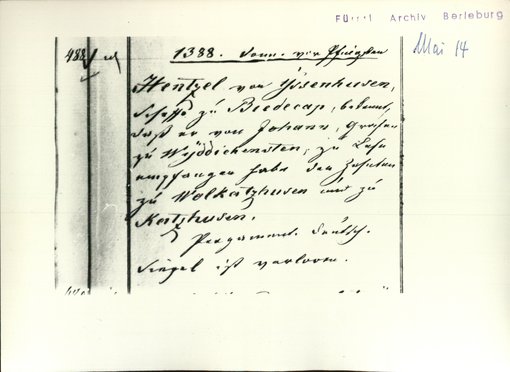 Fürstl Archiv Berleburg
Mai 14
488
1388. Sonn. vor Pfingsten
Hentzel von Yssenhusen,
Scheffe zu Biedecap, bekennt,
daß er von Johann, Grafen
zu Wittgenstein, zu Lehn
empfangen habe den Zehnten
zu Walkatzhusen und zu
Katzhusen.
Pergament. deutsch.
Siegel ist verloren.